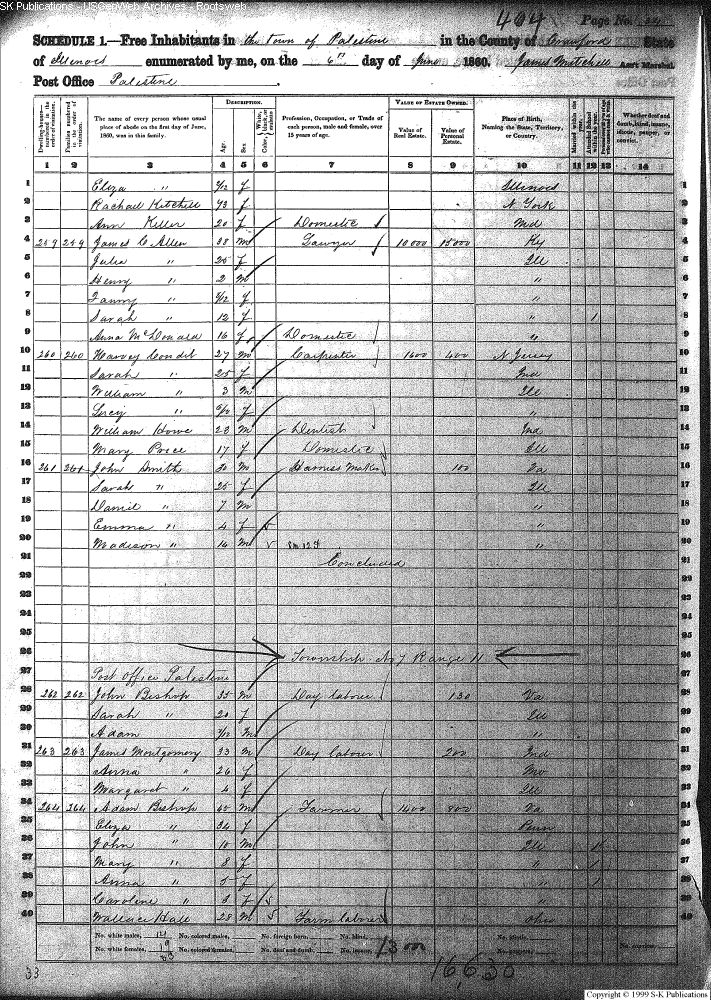 SK Publications - USGenWeb Archives - Rootsweb
404 Page No.
SCHEDULE 1.—Free Inhabitants in the Town of Palestine in the County of Crawford State
of Illinois enumerated by me, on the 6" day of June 1860. James Mitchell Ass't Marshal.
Post Office Palestine.
Dwelling-houses— numbered in the order of visitation.
Families numbered in the order of visitation.
The name of every person whose usual place of abode on the first day of June, 1860, was in this family.
DESCRIPTION.
Age.
Sex.
Color, White, black, or mulatto
Profession, Occupation, or Trade of each person, male and female, over 15 years of age.
VALUE OF ESTATE OWNED.
Value of Real Estate.
Value of Personal Estate.
Place of Birth, Naming the State, Territory, or Country.
Married within the year.
Whether deaf and dumb, blind, insane, idiotic, pauper, or convict.
1 2 3 4 5 6 7 8 9 10 11 12 13 14
1 Eliza " f Illinois 1
2 Rachael Kitchell 43 f N York 2
3 Ann Keller 20 f Domestic Md 3
4 259 259 James C Allen 38 m Lawyer 10000 15000 Ky 4
5 Julia " 25 f Ill 5
6 Henry " 2 m " 6
7 Fanny " f " 7
8 Sarah " 12 f " 1 8
9 Anna McDonald 16 f Domestic " 9
10 260 260 Harvey Condit 27 m Carpenter 1600 400 N Jersey 10
11 Sarah " 25 f Ind 11
12 William " 3 m Ill 12
13 " f " 13
14 William Howe 23 m Dentist Ind 14
15 Mary Price 17 f Domestic Ill 15
16 261 261 John Smith 30 m Harness Maker 100 Va 16
17 Sarah " 25 f Ill 17
18 Daniel " 7 m " 18
19 Emma " 4 f " 19
20 Madison " 14 m " 20
21 Concluded 21
22 22
23 23
24 24
25 25
26 Township No 7 Range 11 26
27 Post Office Palestine 27
28 262 262 John Bishop 35 m Day laborer 130 Va 28
29 Sarah " 20 f Ill 29
30 Adam m " 30
31 263 263 James Montgomery 33 m Day laborer 200 Ind 31
32 Anna " 26 f Mo 32
33 Margaret " 4 f Ill 33
34 264 264 Adam Bishop 65 m Farmer 1400 800 Va 34
35 Eliza " 34 f Penn 35
36 John " 10 m Ill 1 36
37 Mary " 8 f " 1 37
38 Anna " 5 f " 1 38
39 Caroline " 3 f " 39
40 Wallace Hall 28 m Farm laborer Ohio 40
No. white males, 14 No. colored males, No. foreign born, No. blind, No. idiotic,
No. white females, 19 No. colored females, No. deaf and dumb, No. insane, 13 000 No. paupers, No. convicts,
33 16,630
Copyright © 1999 S-K Publications